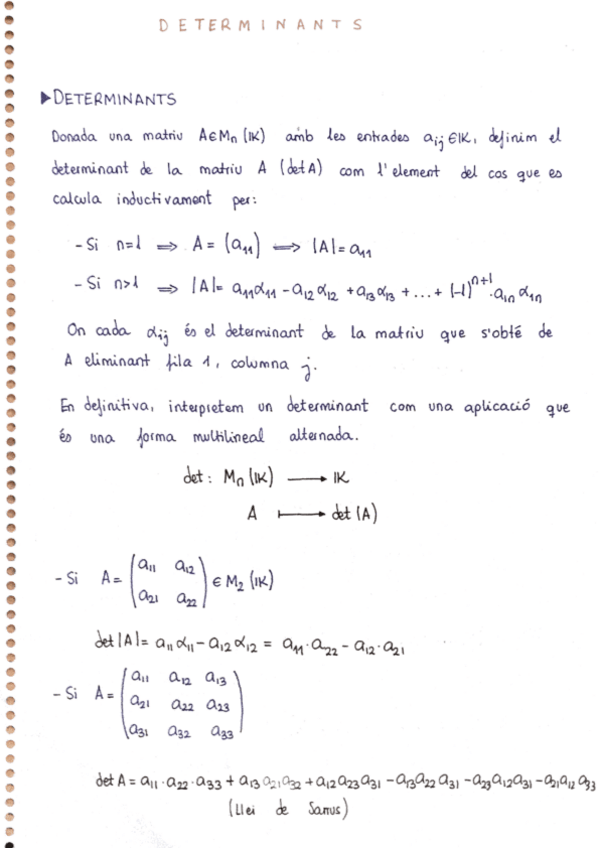 DETERMINANTS
▶DETERMINANTS
Donada una matriu A∈Mₙ(𝕂) amb les entrades aᵢⱼ∈𝕂, definim el
determinant de la matriu A (detA) com l'element del cos que es
calcula inductivament per:
- Si n=1 ⟹ A = (a₁₁) ⟹ |A| = a₁₁
- Si n>1 ⟹ |A| = a₁₁α₁₁ - a₁₂α₁₂ + a₁₃α₁₃ + ... + (-1)ⁿ⁺¹·a₁ₙα₁ₙ
On cada αᵢⱼ és el determinant de la matriu que s'obté de
A eliminant fila 1, columna j.
En definitiva, interpretem un determinant com una aplicació que
és una forma multilineal alternada.
det: Mₙ(𝕂) ⟶ 𝕂
A ⟼ det(A)
- Si A = (a₁₁ a₁₂
a₂₁ a₂₂) ∈ M₂(𝕂)
det|A| = a₁₁α₁₁ - a₁₂α₁₂ = a₁₁·a₂₂ - a₁₂·a₂₁
- Si A = (a₁₁ a₁₂ a₁₃
a₂₁ a₂₂ a₂₃
a₃₁ a₃₂ a₃₃)
det A = a₁₁·a₂₂·a₃₃ + a₁₃a₂₁a₃₂ + a₁₂a₂₃a₃₁ - a₁₃a₂₂a₃₁ - a₂₃a₁₂a₃₁ - a₂₁a₁₂a₃₃
(Llei de Sarrus)